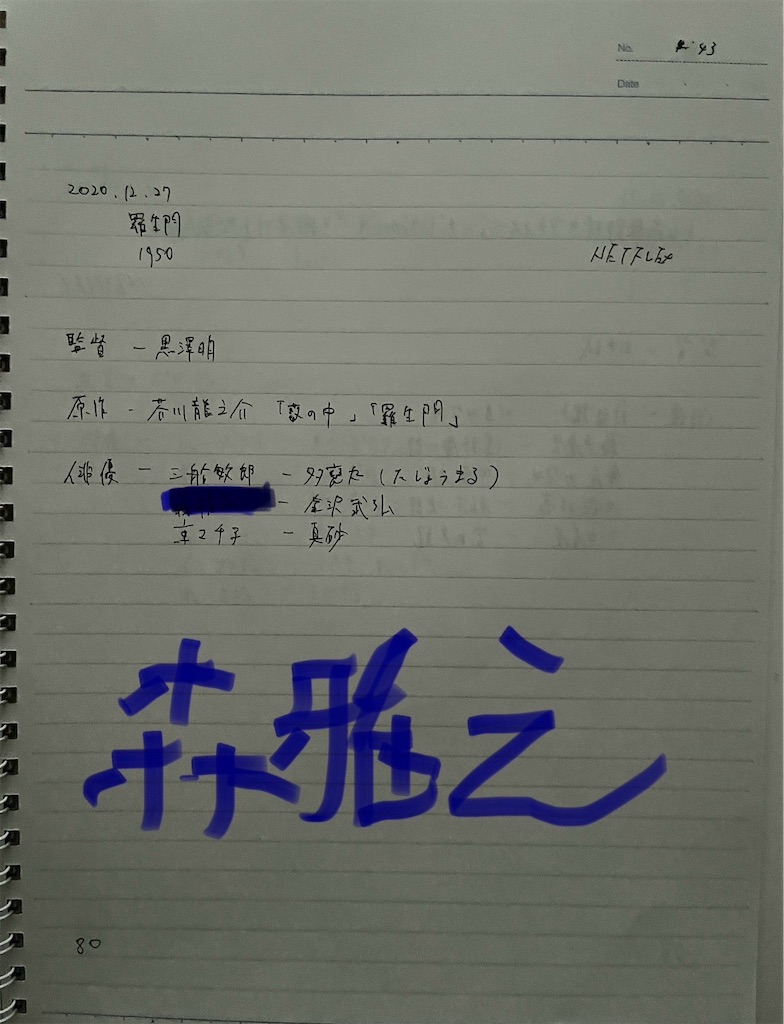 No. 43
Date
2020.12.27
羅生門
1950 NETFLIX
監督 - 黒澤明
原作 - 芥川龍之介 「藪の中」「羅生門」
俳優 - 三船敏郎 - 多襄丸 (たじょうまる)
- 金沢武弘
京マチ子 - 真砂
森雅之
80